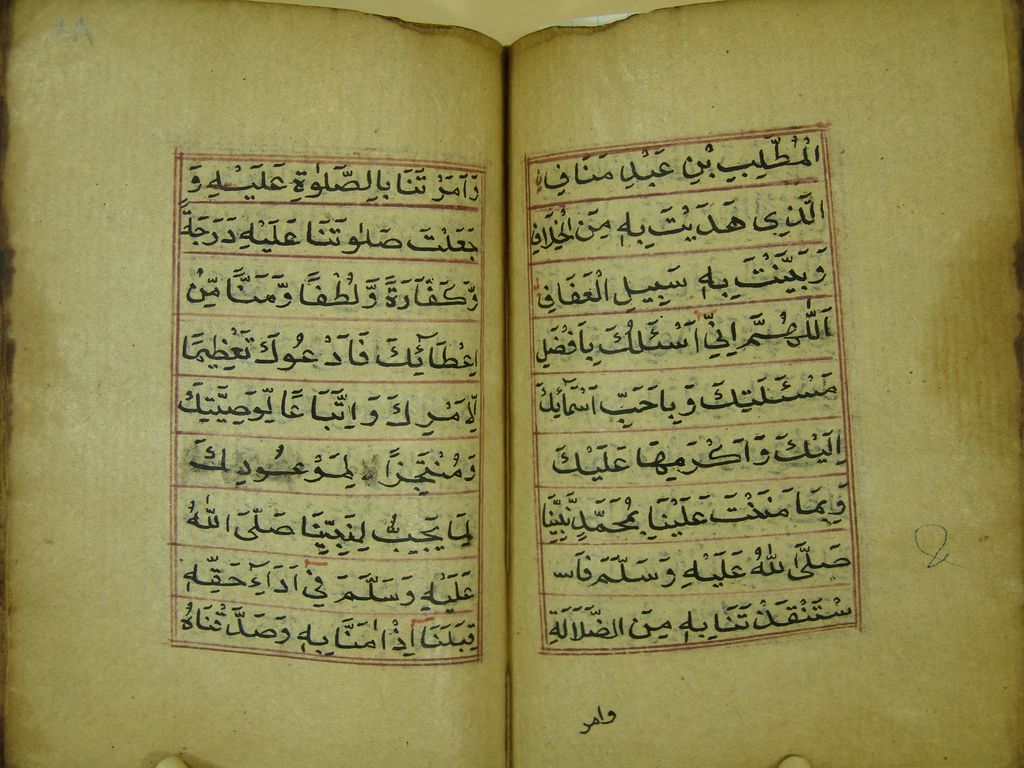 الْمُطَّلِبِ بْنِ عَبْدِ مَنَافٍ
الَّذِى هَدَيْتَ بِهٖ مِنَ الْخِلَافِ
وَبَيَّنْتَ بِهٖ سَبِيلَ الْعَفَافِ
اَللّٰهُمَّ اِنِّىٓ اَسْئَلُكَ بِاَفْضَلِ
مَسْئَلَتِكَ وَبِاَحَبِّ اَسْمَآئِكَ
اِلَيْكَ وَاَكْرَمِهَا عَلَيْكَ
وَبِمَا مَنَنْتَ عَلَيْنَا بِمُحَمَّدٍ نَّبِيِّنَا
صَلَّى اللّٰهُ عَلَيْهِ وَسَلَّمَ فَاَسـ
سْتَنْقَذْتَنَا بِهٖ مِنَ الضَّلَالَةِ
وامر
وَاَمَرْتَنَا بِالصَّلٰوةِ عَلَيْهِ وَ
جَعَلْتَ صَلٰوتَنَا عَلَيْهِ دَرَجَةً
وَّكَفَّارَةً وَّلُطْفًا وَّمَنًّا مِّنْ
اِعْطَآئِكَ فَاَدْعُوكَ تَعْظِيمًا
لِّاَمْرِكَ وَاِتِّبَاعًا لِّوَصِيَّتِكَ
وَمُنْتَجِزًا لِمَوْعُودِكَ
لِمَا يَجِبُ لِنَبِيِّنَا صَلَّى اللّٰهُ
عَلَيْهِ وَسَلَّمَ فِىٓ اَدَآءِ حَقِّهٖ
قِبَلَنَا اِذْ اٰمَنَّا بِهٖ وَصَدَّقْنَاهُ